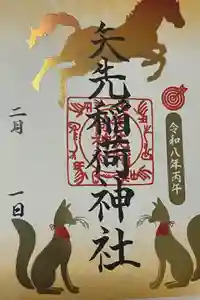 令和八年丙午
矢先稲荷神社
二月 一日